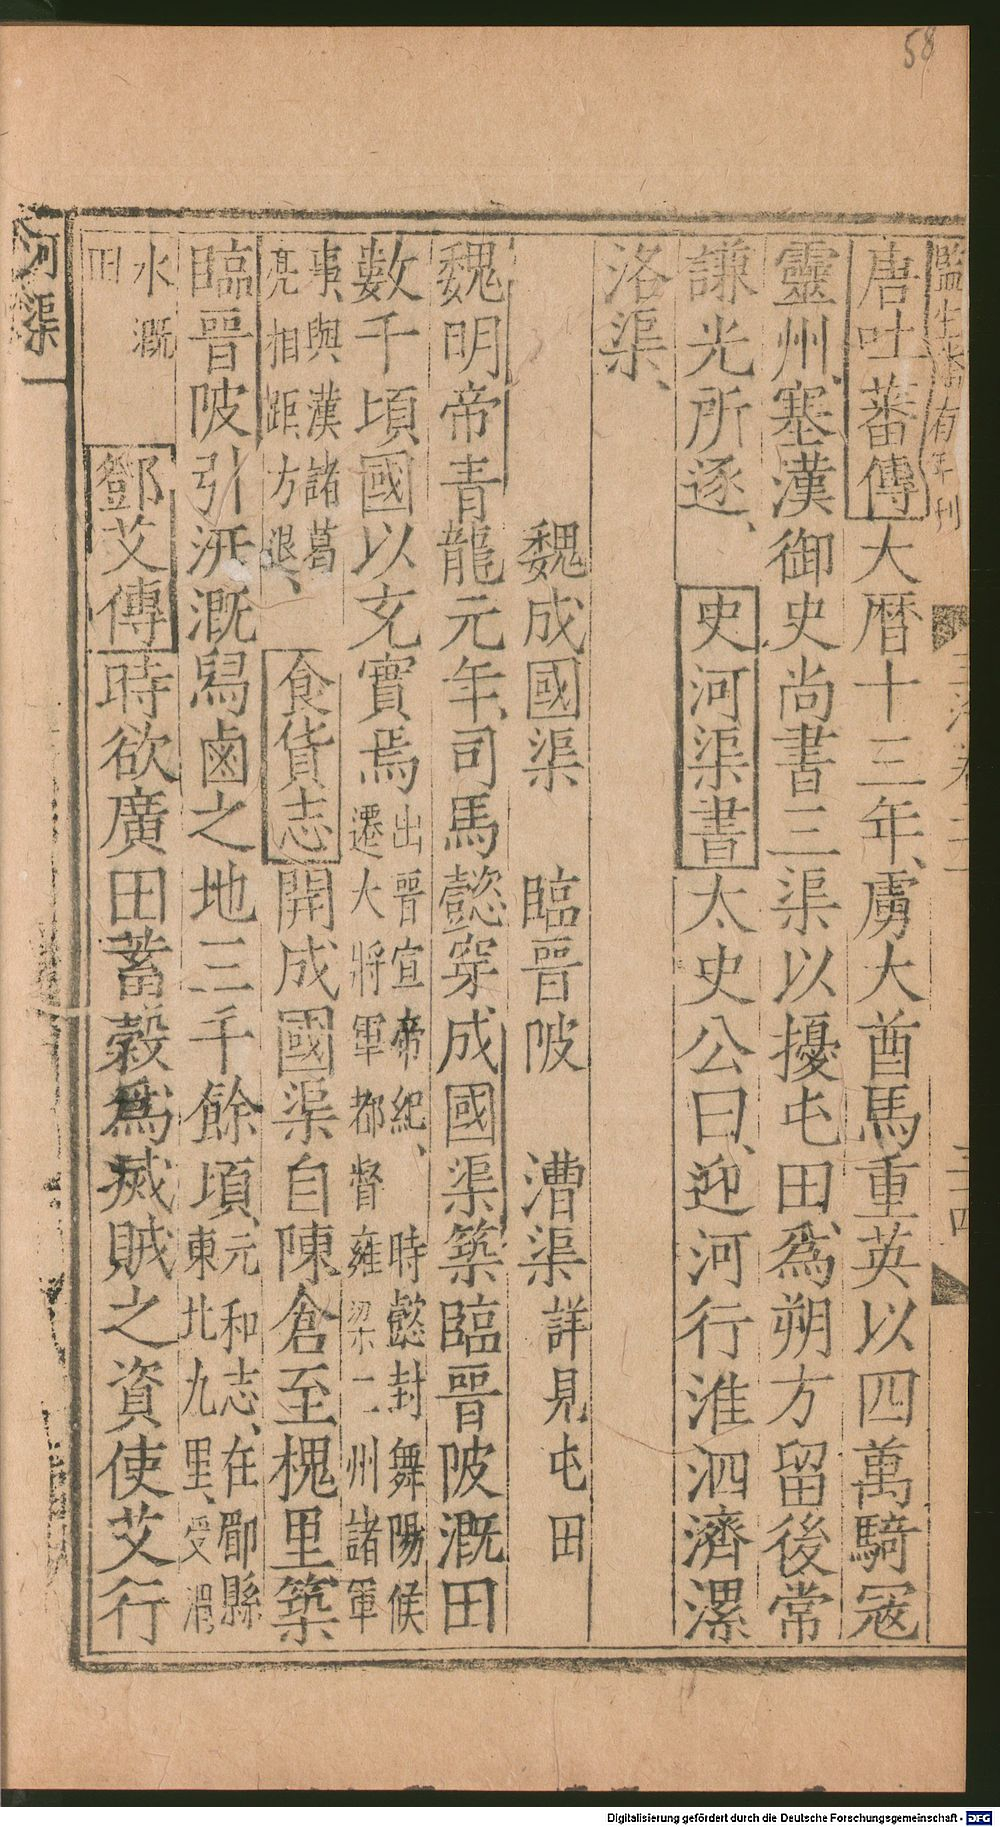 58
監生潘有年刊
唐吐蕃傳大暦十三年、虜大酋馬重英以四萬騎冦
靈州、塞漢御史尚書三渠以擾屯田、爲朔方留後常
謙光所逐、 史河渠書太史公曰、迎河行淮泗濟漯
洛渠、
魏成國渠 臨晉陂 漕渠詳見屯田
魏明帝青龍元年、司馬懿穿成國渠築臨晉陂溉田
數千頃國以充實焉出晉宣帝紀、時懿封舞陽侯
遷大將軍都督雍梁二州諸軍
事、與漢諸葛
亮相距、方退、 食貨志開成國渠自陳倉至槐里築
臨晉陂引汧溉舄鹵之地三千餘頃、元和志、在郿縣
東北九里、受渭
水溉
田 鄧艾傳時欲廣田蓄榖爲烕賊之資使艾行
河渠
Digitalisierung gefördert durch die Deutsche Forschungsgemeinschaft - DFG